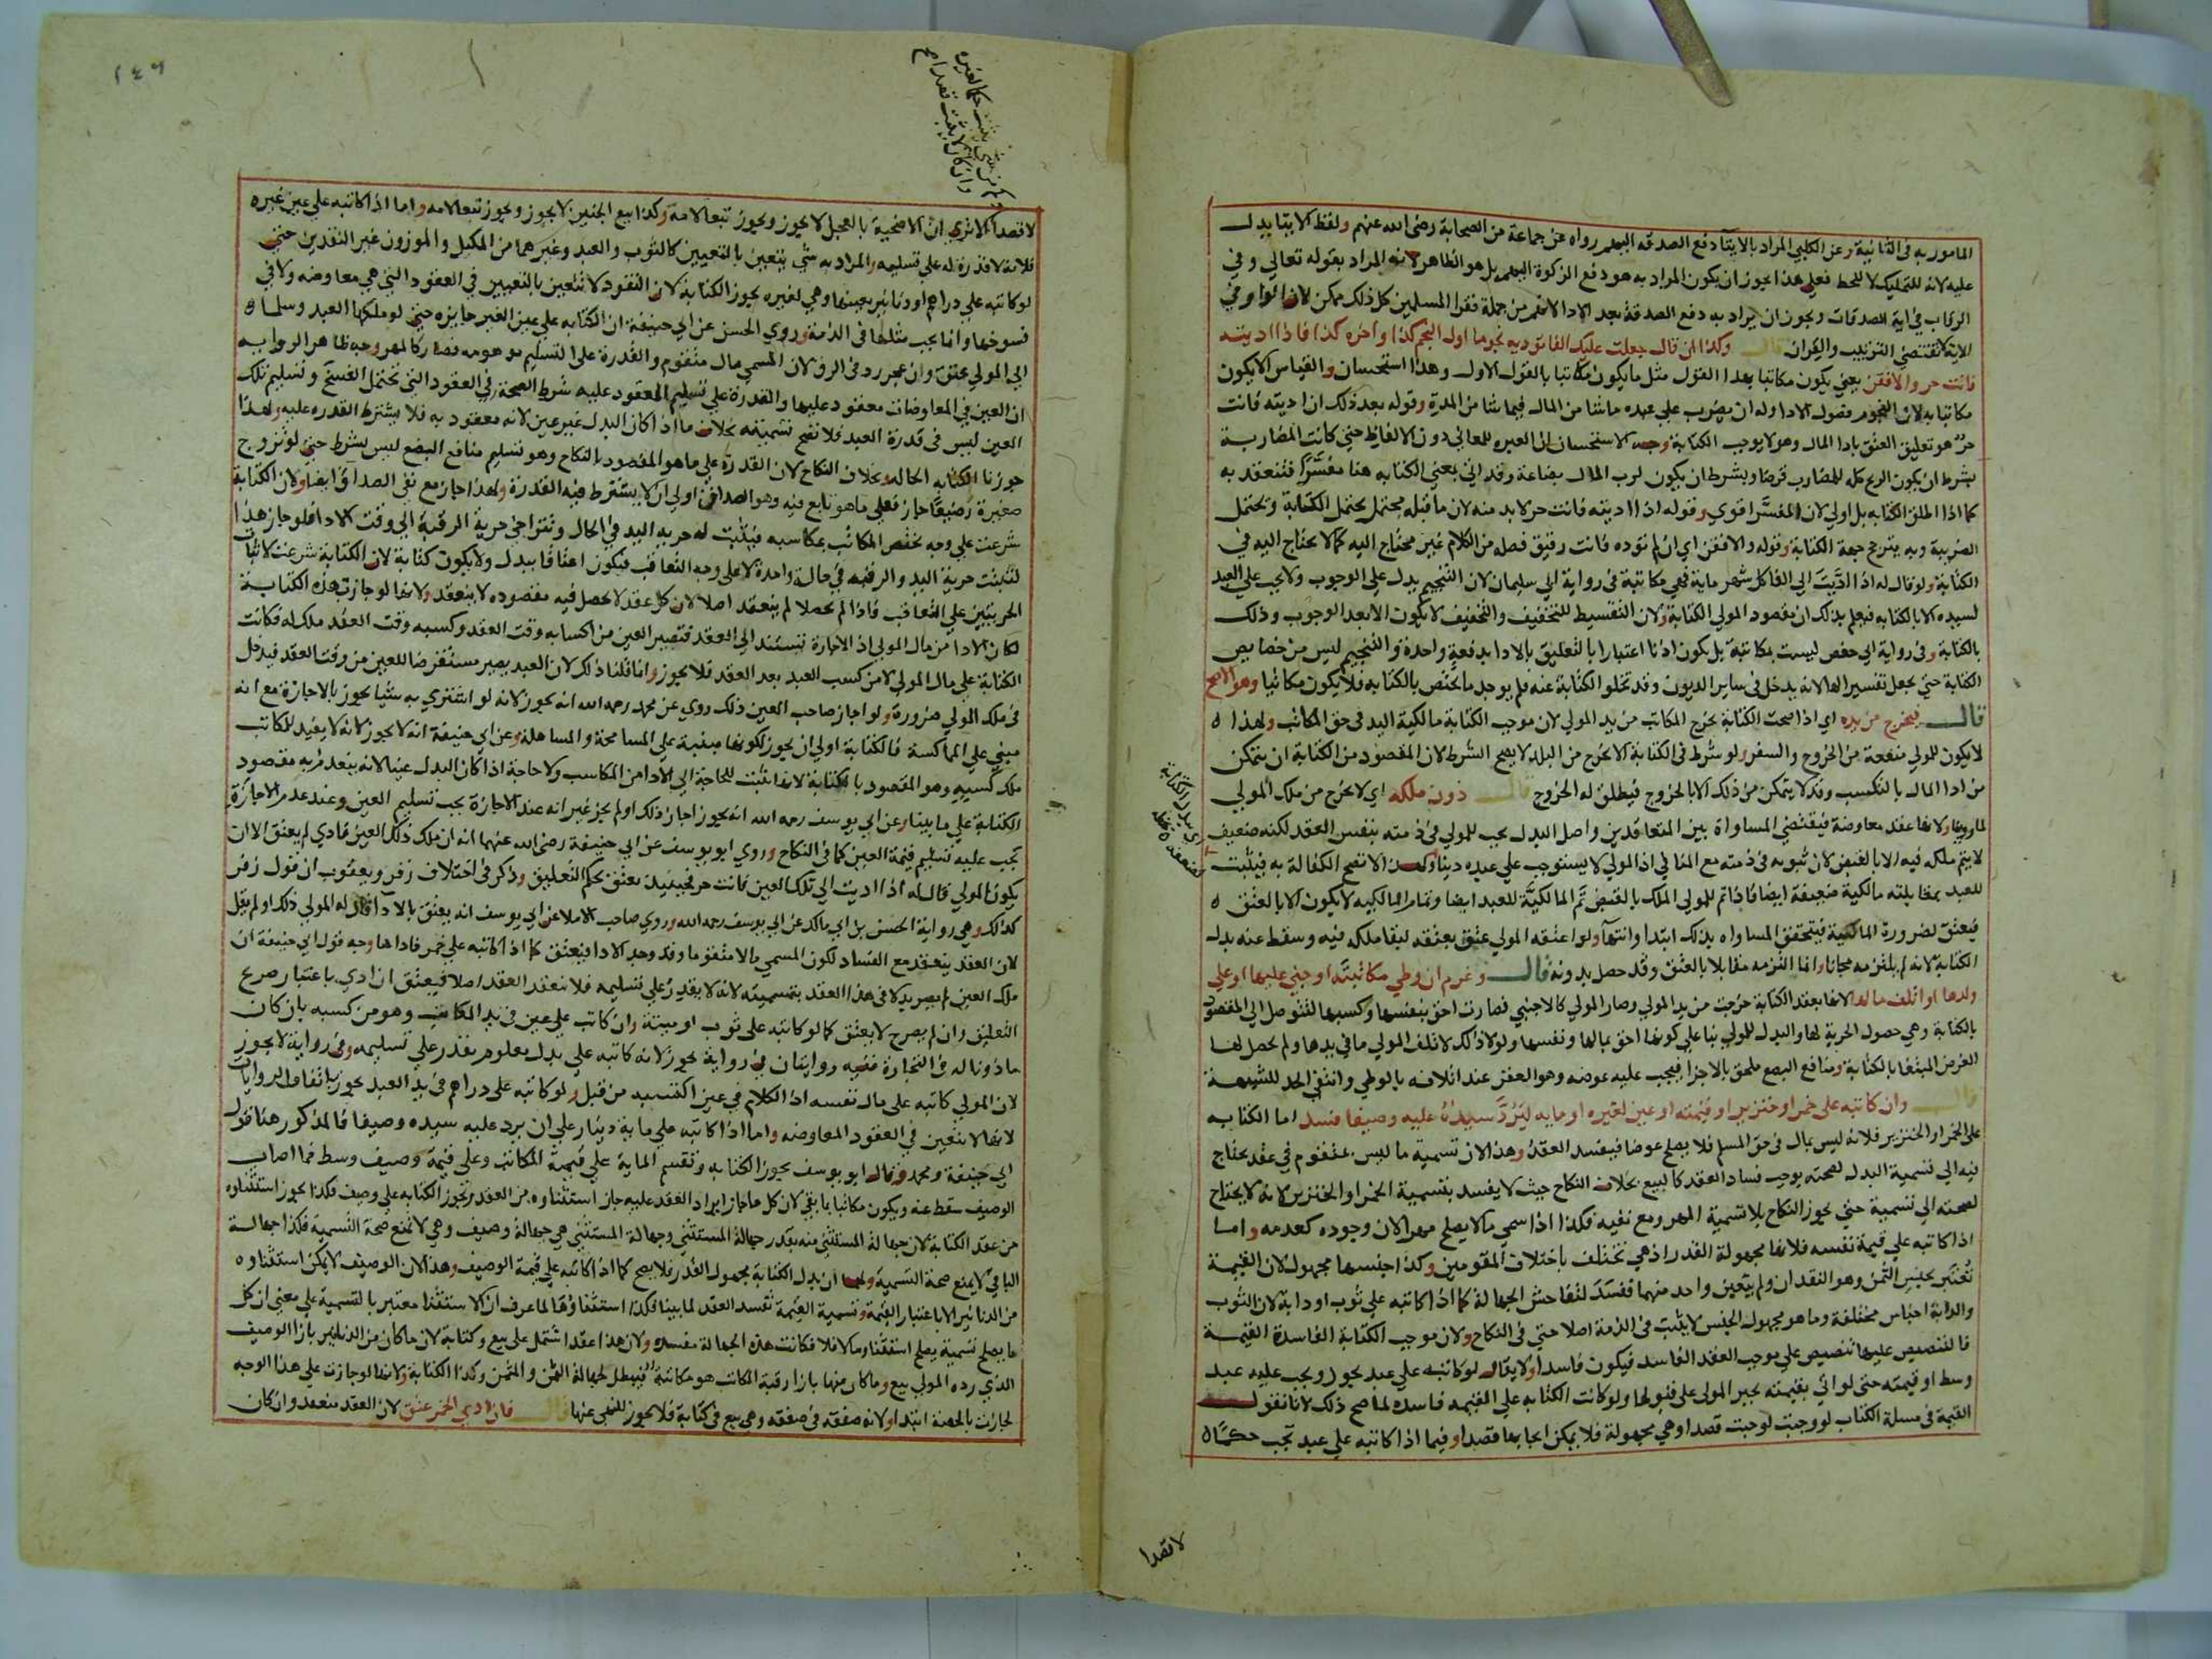 المامور به في الثانية وعن الكلبي المراد بالايتآ دفع الصدقه اليهم رواه عن جماعة من الصحابة رضي الله عنهم ولفظ الايتا يدل
عليه لانه للتمليك لا للحط فعلي هذا يجوز ان يكون المراد به هو دفع الزكوة اليهم بل هو الظاهر لانه المراد بقوله تعالي وفي
الرقاب في اية الصدقات ويجوز ان يراد به دفع الصدقة بعد الادا لانهم من جملة فقرا المسلمين كل ذلك ممكن لان الواو في
الاية لا تقتضي الترتيب والقران قال وكذا ان قال جعلت عليك الفا توديه نجوما اول النجم كذا واخره كذا فاذا اديته
فانت حر والا فقن يعني يكون مكاتبا بهذا القول مثل ما يكون مكاتبا بالقول الاول وهذا استحسان والقياس الا يكون
مكاتبا به لان النجوم فصول الادا وله ان يضرب علي عبده ماشا من المال فيما شا من المدة وقوله بعد ذلك ان اديته فانت
حر هو تعليق العتق بادا المال وهو لا يوجب الكتابة وجه الاستحسان ان العبره للمعاني دون الالفاظ حتي كانت المضاربة
بشرط ان يكون الربح كله للمضارب قرضا وبشرط ان يكون لرب المال بضاعة وقد اتي بمعني الكتابه هنا مفسرا فتنعقد به
كما اذا اطلق الكتابه بل اولي لان المفسر اقوي وقوله اذا اديته فانت حر لا بد منه لان ما قبله محتمل يحتمل الكتابة ويحتمل
الضريبة وبه يترجح جهة الكتابة وقوله والا فقن اي ان لم توده فانت رقيق فصله من الكلام غير محتاج اليه كما لا يحتاج اليه في
الكتابة ولو قال له اذا اديت الي الفا كل شهر ماية فهي مكاتبة في رواية ابي سليمان لان التنجيم يدل علي الوجوب ولا يجب علي العبد
لسيده الا بالكتابه فيعلم بذلك ان مقصود المولي الكتابة ولان التقسيط للتخفيف والتخفيف لا يكون الا بعد الوجوب وذلك
بالكتابة وفي رواية ابي حفص ليست بمكاتبة بل يكون اذنا اعتبارا بالتعليق بالادا بدفعة واحدة والتنجيم ليس من خصايص
الكتابة حتي يجعل تفسيرا لها لانه يدخل في ساير الديون وقد تخلو الكتابة عنه فلم يوجد ما يختص بالكتابه فلا يكون مكاتبا وهو الاصح
قال فيخرج من يده اي اذا صحت الكتابة يخرج المكاتب من يد المولي لان موجب الكتابة مالكية اليد في حق المكاتب ولهذا
لا يكون للمولي منعه من الخروج والسفر ولو شرط في الكتابة الا يخرج من البلد لا يصح الشرط لان المقصود من الكتابة ان يتمكن
من ادا المال بالتكسب وقد لا يتمكن من ذلك الا بالخروج فيطلق له الخروج قال دون ملكه اي لا يخرج من ملك المولي
لما روينا ولانها عقد معاوضة فيقتضي المساواة بين المتعاقدين واصل البدل يجب للمولي في ذمته بنفس العقد لكنه ضعيف
لا يتم ملكه فيه الا بالقبض لان ثبوته في ذمته مع المنافي اذ المولي لا يستوجب علي عبده دينا ولهذا لا تصح الكفالة به فيثبت
للعبد بمقابلته مالكية ضعيفة ايضا فاذا تم للمولي الملك بالقبض تم المالكية للعبد ايضا وتمام المالكيه لا يكون الا بالعتق
فيعتق لضرورة المالكية فيتحقق المساواه بذلك ابتدا وانتهآ ولو اعتقه المولي عتق بعتقه لبقا ملكه فيه وسقط عنه بدل
الكتابة لانه لم يلتزمه مجانا وانما التزمه مقابلا بالعتق وقد حصل بدونه قال وغرم ان وطي مكاتبته او جني عليها او علي
ولدها او اتلف مالها لانها بعقد الكتابة خرجت من يد المولي وصار المولي كالاجنبي فصارت احق بنفسها وكسبها لتتوصل الي المقصود
بالكتابة وهي حصول الحرية لها والبدل للمولي بنا علي كونها احق بمالها ونفسها ولولا ذلك لاتلف المولي ما في يدها ولم يحصل لها
الغرض المبتغا بالكتابة ومنافع البضع ملحق بالاجزا فيجب عليه عوضه وهو العقر عند اتلافه بالوطي وانتفي الحد للشبهة
قال وان كاتبه علي خمر او خنزير او قيمته او عين لغيره او مايه ليرد سيده عليه وصيفا فسد اما الكتابه
علي الخمر او الخنزير فلانه ليس بمال في حق المسلم فلا يصلح عوضا فيفسد العقد وهذا لان تسمية ما ليس بمتقوم في عقد يحتاج
فيه الي تسمية البدل لصحته يوجب فساد العقد كالبيع بخلاف النكاح حيث لا يفسد بتسمية الخمر او الخنزير لانه لا يحتاج
لصحته الي تسمية حتي يجوز النكاح بلا تسمية المهر ومع نفيه فكذا اذا سمي ما لا يصلح مهرا لان وجوده كعدمه واما
اذا كاتبه علي قيمة نفسه فلانها مجهولة القدر اذ هي تختلف باختلاف المقومين وكذا جنسها مجهول لان القيمة
تعتبر بجنس الثمن وهو النقدان ولم يتعين واحد منهما ففسد لتفاحش الجهالة كما اذا كاتبه علي ثوب او دابة لان الثوب
والدابة اجناس مختلفة وما هو مجهول الجنس لا يثبت في الذمة اصلا حتي في النكاح ولان موجب الكتابة الفاسدة القيمة
فالتنصيص عليها تنصيص علي موجب العقد الفاسد فيكون فاسدا ولا يقال لو كاتبه علي عبد يجوز ويجب عليه عبد
وسط او قيمته حتي لو اتي بقيمته يجبر المولي علي قبولها ولو كانت الكتابه علي القيمه فاسده لما صح ذلك لانا نقول
القيمة في مسلة الكتاب لو وجبت لوجبت قصدا وهي مجهولة فلا يمكن ايجابها قصدا وفيما اذا كاتبه علي عبد تجب حكما
لا قصدا
اي بدل الكتابة
١٤٦
لا قصدا الا تري ان الاضحية بالعجل لا يجوز ويجوز تبعا لامه وكذا بيع الجنين لا يجوز ويجوز تبعا لامه واما اذا كاتبه علي عين غيره
فلانه لا قدرة له علي تسليمه والمراد به شي يتعين بالتعيين كالثوب والعبد وغيرهما من المكيل والموزون غير النقدين حتي
لو كاتبه علي دراهم او دنانير بعينها وهي لغيره يجوز الكتابة لان النقود لا تتعين بالتعيين في العقود التي هي معاوضه ولا في
فسوخها وانما يجب مثلها في الذمة وروي الحسن عن ابي حنيفة ان الكتابه علي عين الغير جايزه حتي لو ملكها العبد وسلمها
الي المولي يعتق وان عجز رد في الرق لان المسمي مال متقوم والقدرة علي التسليم موهومه فصار كالمهر وجه ظاهر الروايه
ان العين في المعاوضات معقود عليها والقدرة علي تسليم المعقود عليه شرط الصحة في العقود التي تحتمل الفسخ وتسليم تلك
العين ليس في قدرة العبد فلا تصح تسميته بخلاف ما اذا كان البدل غير عين لانه معقود به فلا يشترط القدره عليه ولهذا
جوزنا الكتابه الحاله وبخلاف النكاح لان القدرة علي ما هو المقصود بالنكاح وهو تسليم منافع البضع ليس بشرط حتي لو تزوج
صغيرة رضيعا جاز فعلي ما هو تابع فيه وهو الصداق اولي ان لا يشترط فيه القدرة ولهذا جاز مع نفي الصداق ايضا ولان الكتابة
شرعت علي وجه يختص المكاتب بمكاسبه فيثبت له حرية اليد في الحال وتتراخي حرية الرقبة الي وقت الادا فلو جاز هذا
لثبتت حرية اليد والرقبه في حالة واحدة لا علي وجه التعاقب فيكون اعتاقا ببدل ولا يكون كتابة لان الكتابة شرعت لاثبات
الحريتين علي التعاقب فاذا لم يحصلا لم ينعقد اصلا لان كل عقد لا يحصل فيه مقصوده لا ينعقد ولانها لو جازت هذه الكتابة
لكان الادا من مال المولي اذ الاجازة تستند الي العقد فتصير العين من اكسابه وقت العقد وكسبه وقت العقد ملك له فكانت
الكتابة علي مال المولي لا من كسب العبد بعد العقد فلا يجوز وانما قلنا ذلك لان العبد يصير مستقرضا للعين من وقت العقد فيدخل
في ملك المولي ضرورة ولو اجاز صاحب العين ذلك روي عن محمد رحمه الله انه يجوز لانه لو اشتري به شيا يجوز بالاجازة مع انه
مبني علي المماكسة فالكتابة اولي ان يجوز لكونها مبنية علي المسامحة والمساهلة وعن ابي حنيفة انه لا يجوز لانه لا يفيد للمكاتب
ملك كسبه وهو المقصود بالكتابة لانها تثبت للحاجة الي الادا من المكاسب ولا حاجة اذا كان البدل عينا لانه ينعدم به مقصود
الكتابة علي ما بينا وعن ابي يوسف رحمه الله انه يجوز اجاز ذلك او لم يجز غير انه عند الاجازة يجب تسليم العين وعند عدم الاجازة
يجب عليه تسليم قيمة العين كما في النكاح وروي ابو يوسف عن ابي حنيفة رضي الله عنهما انه ان ملك ذلك العين فادي لم يعتق الا ان
يكون المولي قال له اذا اديت الي تلك العين فانت حر فحينيذ يعتق بحكم التعليق وذكر في اختلاف زفر ويعقوب ان قول زفر
كذلك وهي رواية الحسن بن ابي مالك عن ابي يوسف رحمه الله وروي صاحب الاملا عن ابي يوسف انه يعتق بالادآ قال له المولي ذلك او لم يقل
لان العقد ينعقد مع الفساد لكون المسمي مالا متقوما وقد وجد الادا فيعتق كما اذا كاتبه علي خمر فاداها وجه قول ابي حنيفة ان
ملك العين لم يصر بدلا في هذا العقد بتسميته لانه لا يقدر علي تسليمه فلا ينعقد العقد اصلا فيعتق ان ادي باعتبار صريح
التعليق وان لم يصرح لا يعتق كما لو كاتبه علي ثوب او ميتة وان كاتب علي عين في يد المكاتب وهو من كسبه بان كان
ماذونا له في التجارة ففيه روايتان في رواية يجوز لانه كاتبه علي بدل معلوم يقدر علي تسليمه وفي رواية لا يجوز
لان المولي كاتبه علي مال نفسه اذ الكلام في عين اكتسبه من قبل ولو كاتبه علي دراهم في يد العبد يجوز باتفاق الروايات
لانها لا تتعين في العقود المعاوضه واما اذا كاتبه علي ماية دينار علي ان يرد عليه سيده وصيفا فالمذكور هنا قول
ابي حنيفة ومحمد وقال ابو يوسف يجوز الكتابه وتقسم الماية علي قيمة المكاتب وعلي قيمة وصيف وسط فما اصاب
الوصيف سقط عنه ويكون مكاتبا بما بقي لان كل ما جاز ايراد العقد عليه جاز استثناوه من العقد وتجوز الكتابه علي وصيف فكذا يجوز استثناوه
من عقد الكتابة لان جهالة المستثني منه بقدر جهالة المستثني وجهالة المستثني هي جهالة وصيف وهي لا تمنع صحة التسمية فكذا جهالة
الباقي لا يمنع صحة التسمية ولهما ان بدل الكتابة مجهول القدر فلا يصح كما اذا كاتبه علي قيمة الوصيف وهذا لان الوصيف لا يمكن استثناوه
من الدنانير الا باعتبار القيمة وتسمية القيمة تفسد العقد لما بينا فكذا استثناوها لما عرف ان الاستثنا معتبر بالتسمية علي معني ان كل
ما يصلح تسمية يصلح استثنا وما لا فلا فكانت هذه الجهالة مفسده ولان هذا عقد اشتمل علي بيع وكتابة لان ما كان من الدنانير بازا الوصيف
الذي رده المولي بيع وما كان منها بازا رقبة المكاتب هو مكاتبة فيبطل لجهالة الثمن والمثمن وكذا الكتابة ولانها لو جازت علي هذا الوجه
لجازت بالحصة ابتدا ولانه صفقه في صفقه وهي بيع في كتابة فلا يجوز للنهي عنها قال فان ادي الخمر عتق لان العقد منعقد وان كان